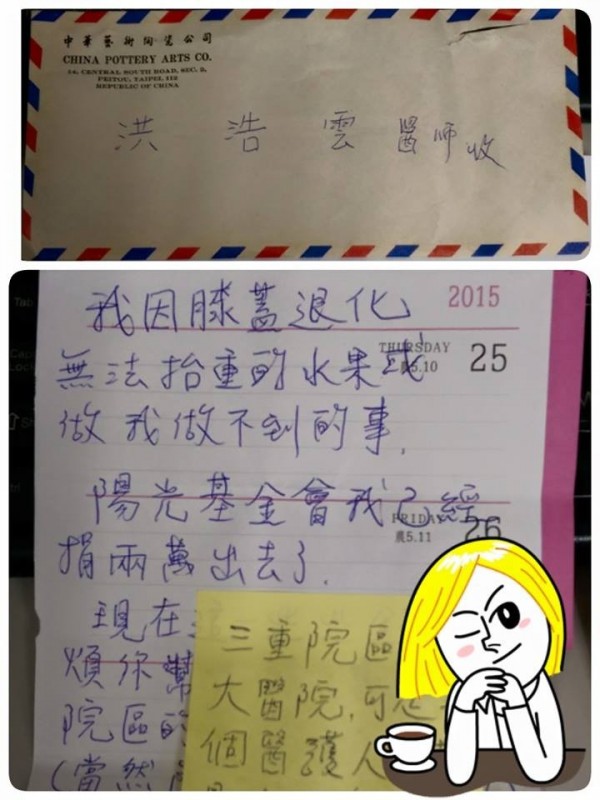 中華藝術陶瓷公司
CHINA POTTERY ARTS CO.
14, CENTRAL SOUTH ROAD, SEC. 2,
PEITOU, TAIPEI, 112
REPUBLIC OF CHINA
洪浩雲醫師收
2015
我因膝蓋退化
THURSDAY 25
農5.10
無法抬重的水果或
做我做不到的事.
陽光基金會我已經
FRIDAY 26
農5.11
捐兩萬出去了.
現在
煩你幫
院區的
(當然
三重院區
大醫院,可
個醫護人